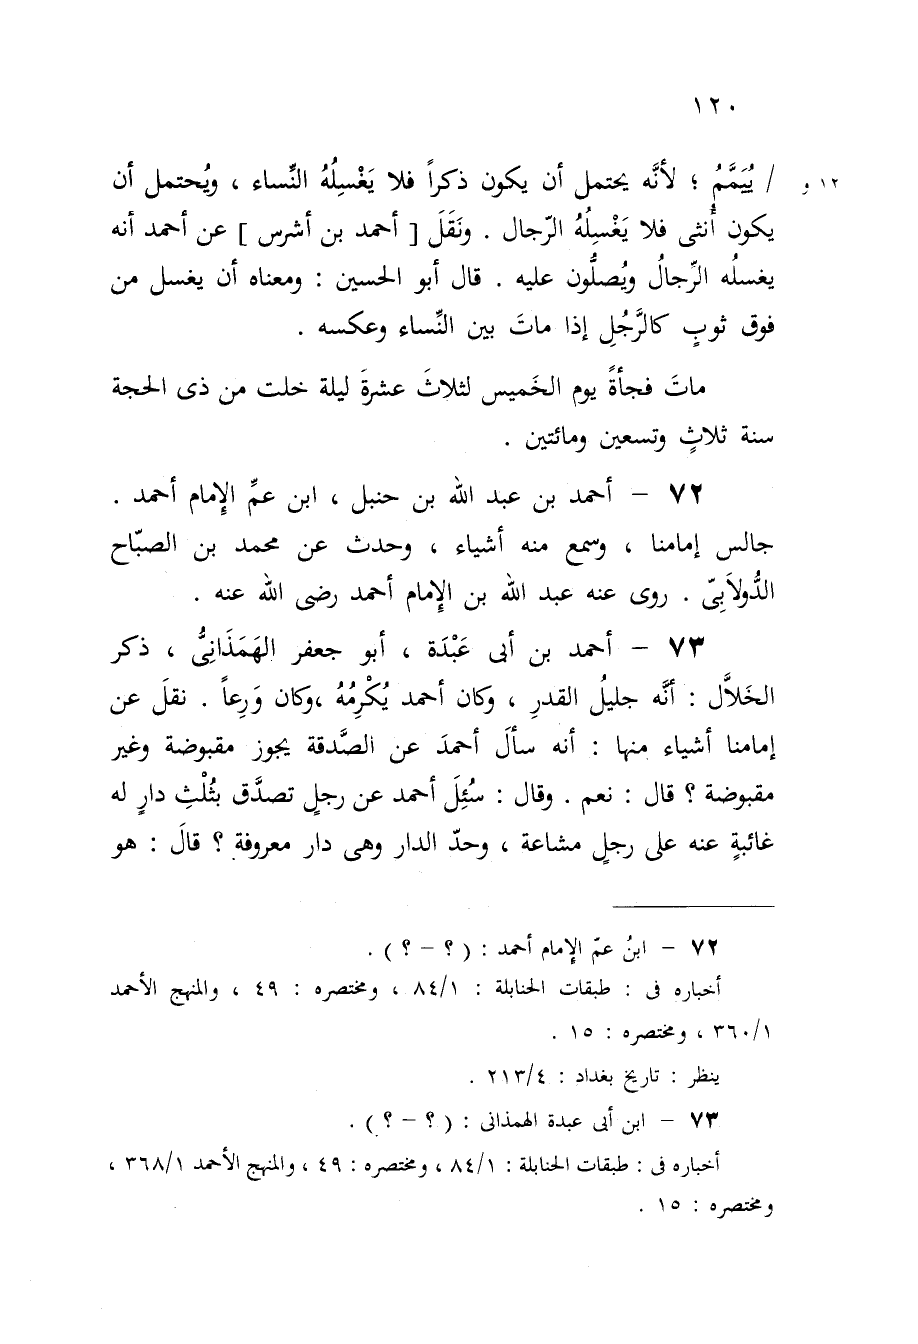 ١٢٠
١٢ و / يُيَمَّمُ ؛ لأنَّه يحتمل أن يكون ذكراً فلا يَغْسِلُهُ النِّساء ، ويُحتمل أن
يكون أُنثى فلا يَغْسِلُهُ الرّجال . ونَقَلَ [ أحمد بن أشرس ] عن أحمد أنه
يغسلُه الرِّجالُ ويُصلُّون عليه . قال أبو الحسين : ومعناه أن يغسل من
فوق ثوبٍ كالرَّجُلِ إذا ماتَ بين النِّساء وعكسه .
ماتَ فجأةً يوم الخَميس لثلاثَ عشرةَ ليلة خلت من ذى الحجة
سنة ثلاثٍ وتسعين ومائتين .
٧٢ – أحمد بن عبد الله بن حنبل ، ابن عمِّ الإمام أحمد .
جالس إمامنا ، وسمع منه أشياء ، وحدث عن محمد بن الصبّاح
الدُّولاَبِىّ . روى عنه عبد الله بن الإمام أحمد رضى الله عنه .
٧٣ – أحمد بن أبى عَبْدَة ، أبو جعفر الهَمَذَانِىُّ ، ذكر
الخَلاَّل : أنَّه جليلُ القدرِ ، وكان أحمد يُكْرِمُهُ ،وكان وَرِعاً . نقلَ عن
إمامنا أشياء منها : أنه سألَ أحمدَ عن الصَّدقة يجوز مقبوضة وغير
مقبوضة ؟ قال : نعم . وقال : سُئِلَ أحمد عن رجلٍ تصدَّق بثُلْثِ دارٍ له
غائبةٍ عنه على رجلٍ مشاعة ، وحدّ الدار وهى دار معروفة ؟ قالَ : هو
٧٢ – ابنُ عمّ الإمام أحمد : ( ؟ – ؟ ) .
أخباره فى : طبقات الحنابلة : ٨٤/١ ، ومختصره : ٤٩ ، والمنهج الأحمد
٣٦٠/١ ، ومختصره : ١٥ .
ينظر : تاريخ بغداد : ٢١٣/٤ .
٧٣ – ابن أبى عبدة الهمذانى : ( ؟ – ؟ ) .
أخباره فى : طبقات الحنابلة : ٨٤/١ ، ومختصره : ٤٩ ، والمنهج الأحمد ٣٦٨/١ ،
ومختصره : ١٥ .